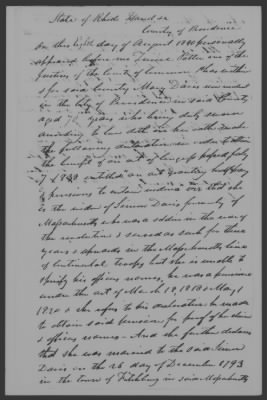 State of Rhode Island ss
County of Providence
On this Eighth day of August 1840 personally
appeared before me Potter one of the
Justices of the Court of Common Pleas within
& for said County Mary Davis now resident
in the City of Providence in said County
aged 76 years who being duly sworn
according to law doth on her oath make
the following declaration in order to obtain
the benefit of an act of Congress passed July
7 1838 entitled an act granting half pay
& pensions to certain widows viz that she
is the widow of Davis formerly of
Massachusetts who was a soldier in the war of
the revolution & served as such for three
years & upwards in the Massachusetts line
of Continental troops but she is unable to
specify his officers names, he was a pensioner
under the act of March 18, 1818 & May 1,
1820 & she refers to his declaration he made
to obtain said pension for proof of his service
& officers names - And she further declares
that she was married to the said
Davis on the 26 day of December 1793
in the town of Fitchburg in said Massachusetts